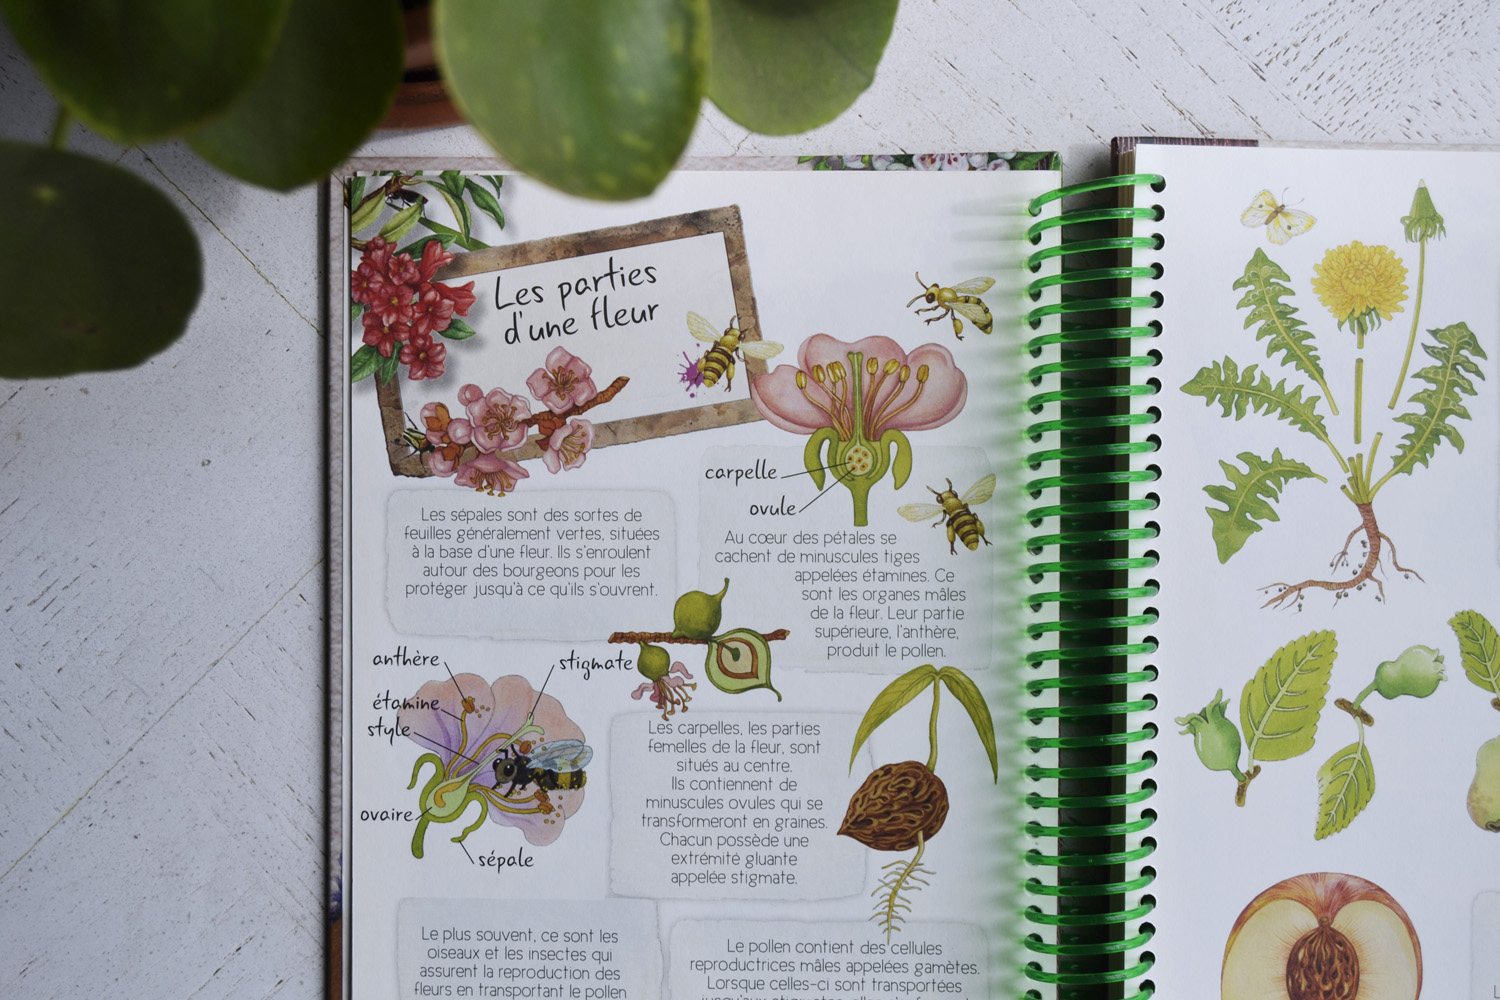 Les parties
d'une fleur
carpelle
ovule
Les sépales sont des sortes de
feuilles généralement vertes, situées
à la base d'une fleur. Ils s'enroulent
autour des bourgeons pour les
protéger jusqu'à ce qu'ils s'ouvrent.
Au cœur des pétales se
cachent de minuscules tiges
appelées étamines. Ce
sont les organes mâles
de la fleur. Leur partie
supérieure, l'anthère,
produit le pollen.
anthère
stigmate
étamine
style
ovaire
sépale
Les carpelles, les parties
femelles de la fleur, sont
situés au centre.
Ils contiennent de
minuscules ovules qui se
transformeront en graines.
Chacun possède une
extrémité gluante
appelée stigmate.
Le plus souvent, ce sont les
oiseaux et les insectes qui
assurent la reproduction des
fleurs en transportant le pollen
Le pollen contient des cellules
reproductrices mâles appelées gamètes.
Lorsque celles-ci sont transportées